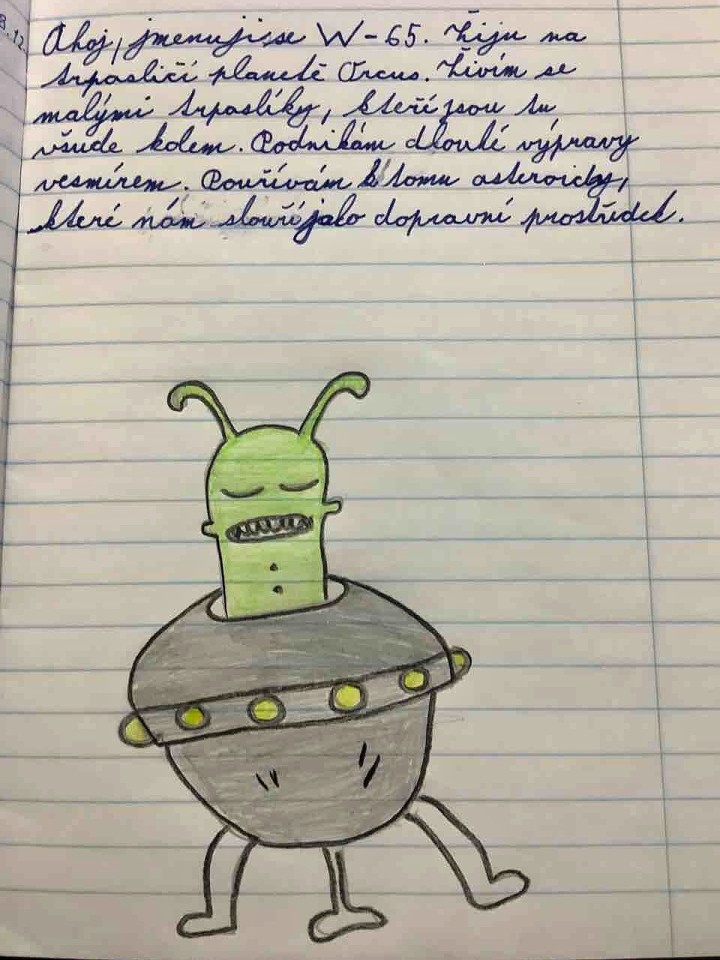 Ahoj, jmenuji se W-65. Žiju na
trpasličí planetě Orcus. Živím se
malými trpaslíky, kteří jsou tu
všude kolem. Podnikám dlouhé výpravy
vesmírem. Používám k tomu asteroidy,
které nám slouží jako dopravní prostředek.